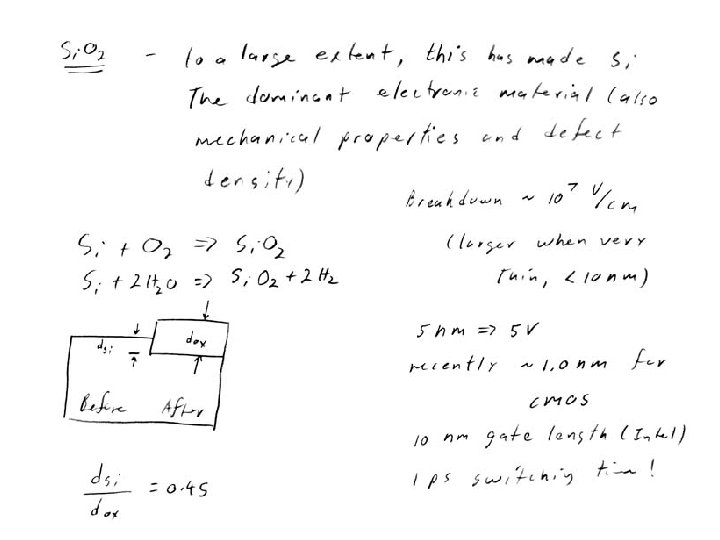 SiO2 - to a large extent, this has made Si
The dominant electronic material (also
mechanical properties and defect
density)
Breakdown ~ 10^7 V/cm
(larger when very
thin, <10nm)
Si + O2 => SiO2
Si + 2H2O => SiO2 + 2H2
dsi
dox
Before After
5nm => 5V
recently ~1.0nm for
CMOS
10 nm gate length (Intel)
1 ps switching time!
dsi/dox = 0.45